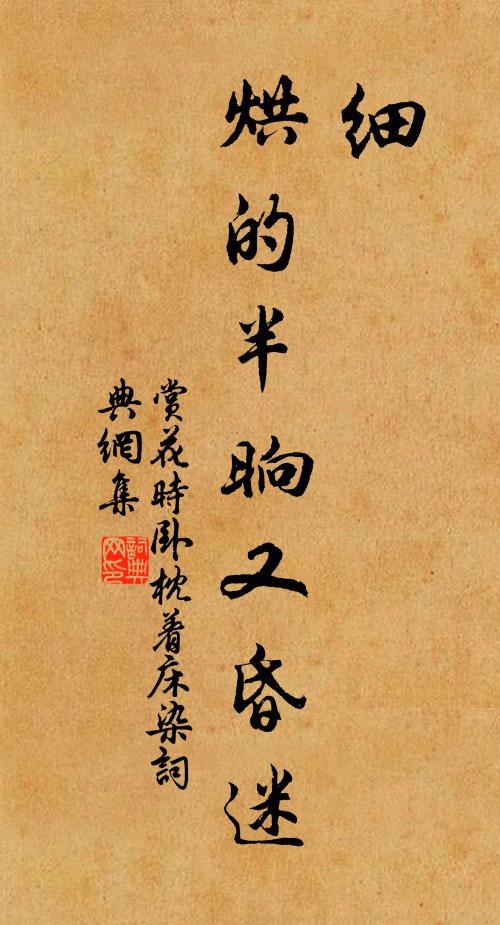 细
烘的半晌又昏迷
赏花時卧枕着床染詞
典網集
詞典
网印